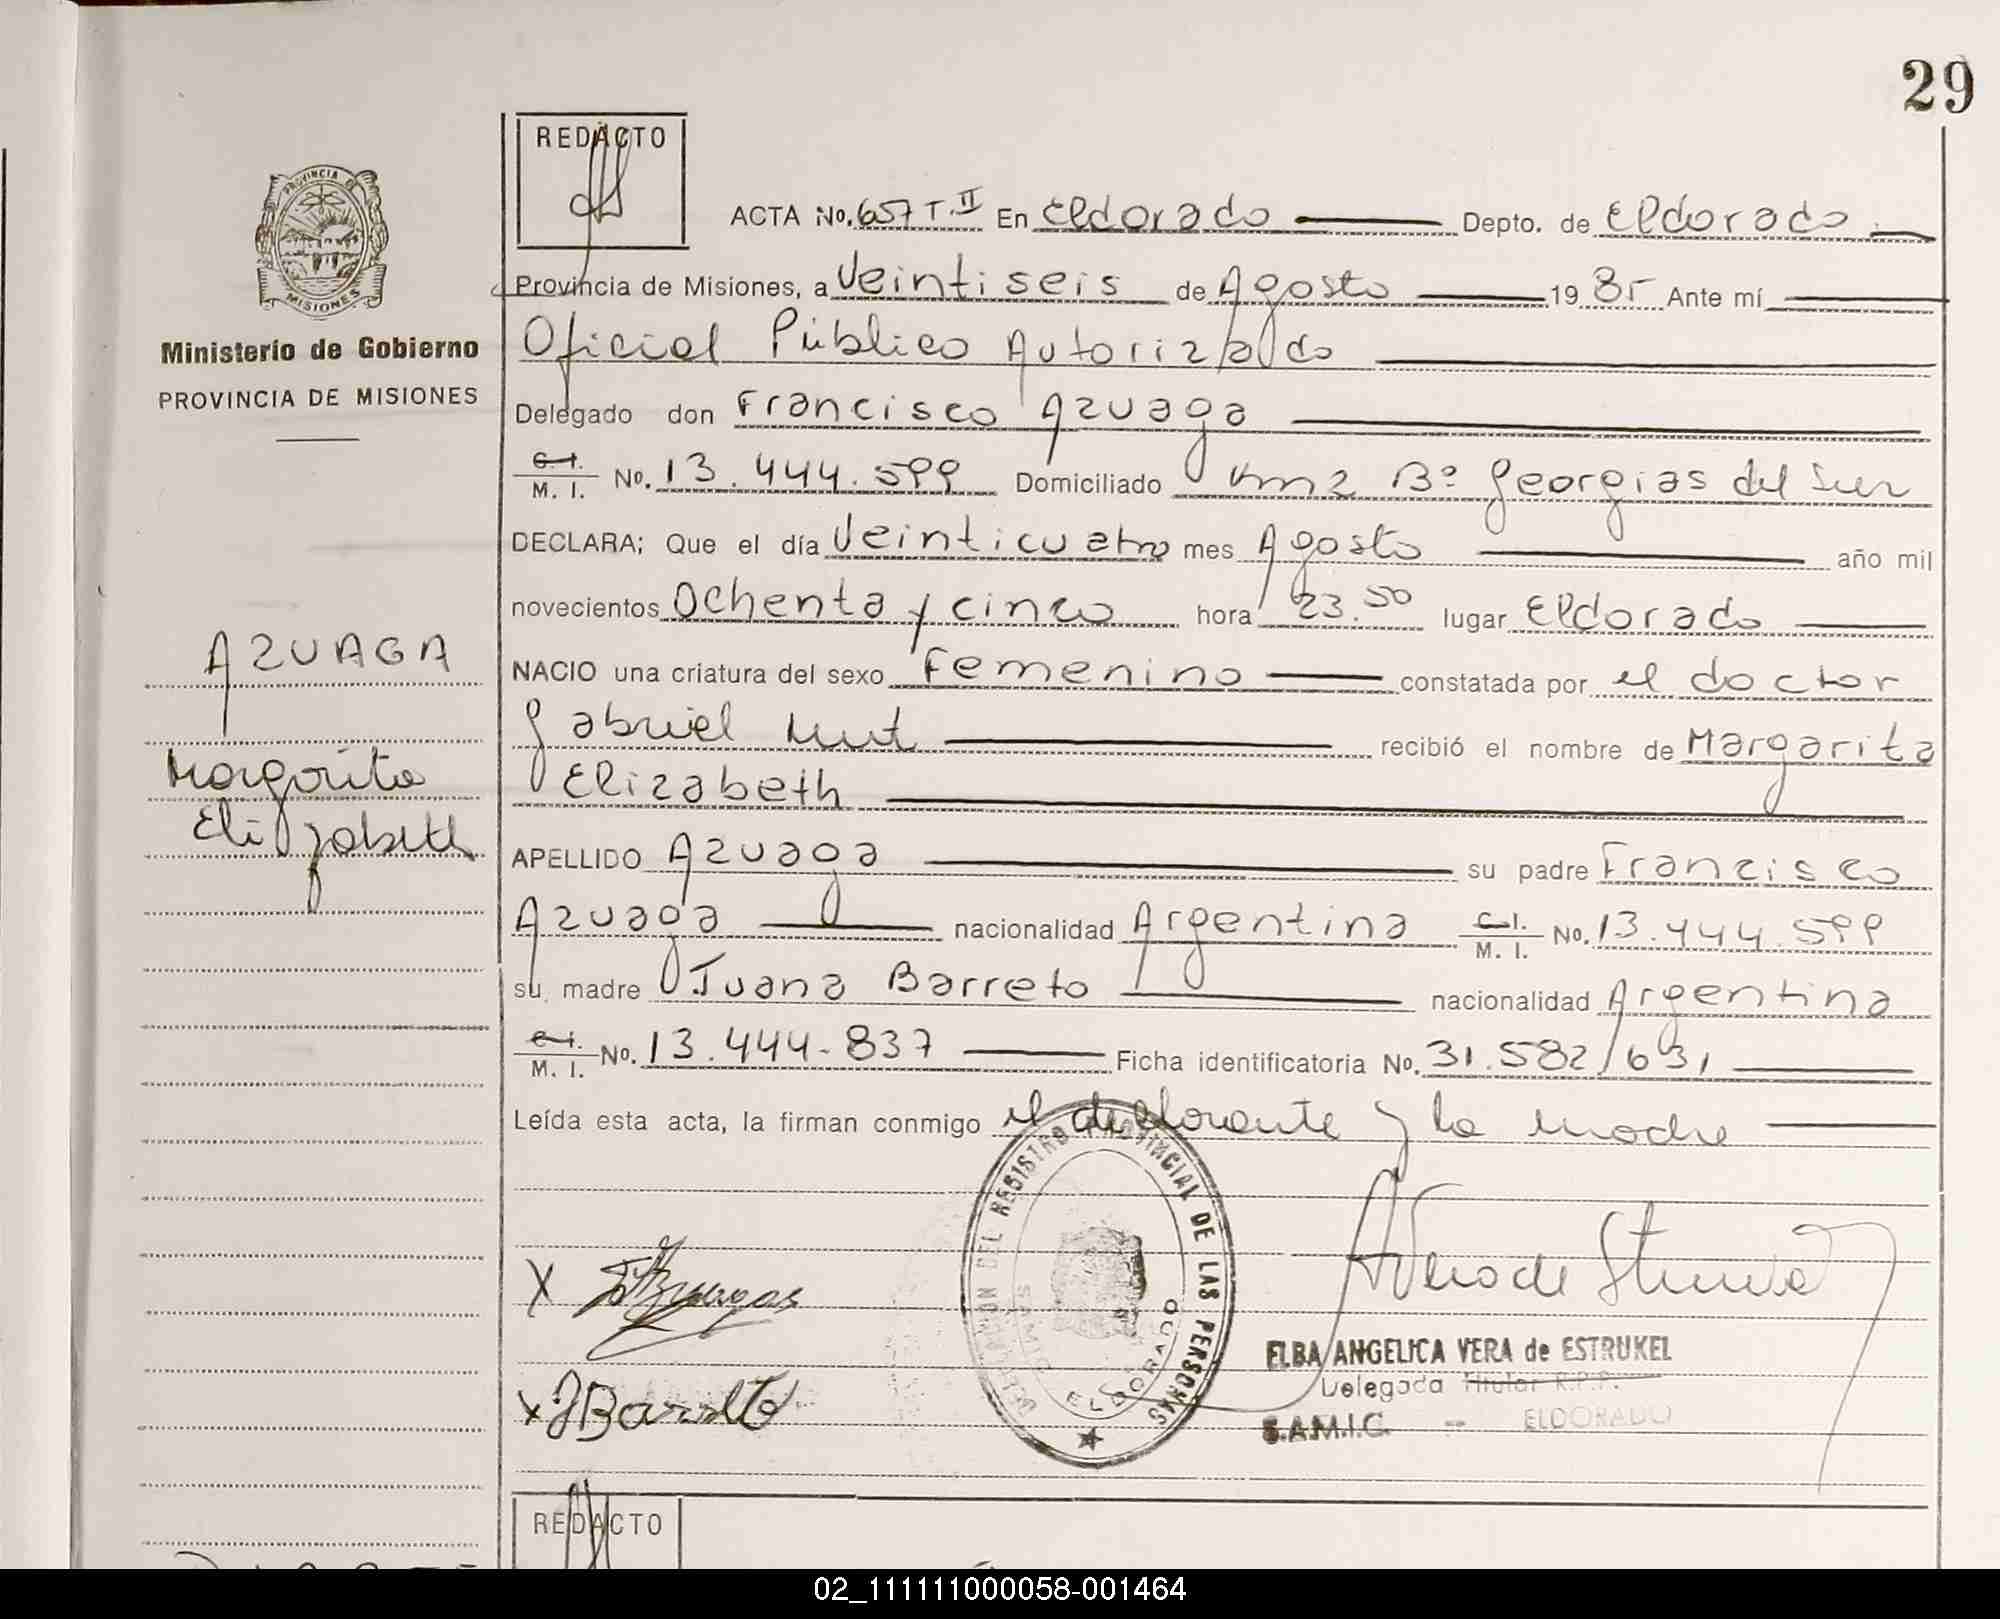 29
REDACTO
PROVINCIA DE
MISIONES
Ministerio de Gobierno
PROVINCIA DE MISIONES
AZUAGA
Margarita
Elizabeth
ACTA No. 657 T. II En Eldorado Depto. de Eldorado
Provincia de Misiones, a Veintiseis de Agosto 1985 Ante mí
Oficial Público Autorizado
Delegado don Francisco Azuaga
C. I. M. I. No. 13.444.599 Domiciliado Km 2 Bº Georgias del Sur
DECLARA; Que el día Veinticuatro mes Agosto año mil
novecientos Ochenta y cinco hora 23.50 lugar Eldorado
NACIO una criatura del sexo Femenino constatada por el doctor
Gabriel recibió el nombre de Margarita
Elizabeth
APELLIDO Azuaga su padre Francisco
Azuaga nacionalidad Argentina C. I. M. I. No. 13.444.599
su madre Juana Barreto nacionalidad Argentina
C. I. M. I. No. 13.444.837 Ficha identificatoria No. 31.582/631
Leída esta acta, la firman conmigo el declarante y la madre
DEL REGISTRO PROVINCIAL DE LAS PERSONAS
SAMIC ELDORADO
X Azuaga
X JBarreto
AVera de
ELBA ANGELICA VERA de ESTRUKEL
Delegada Titular R.P.P.
S.A.M.I.C. -- ELDORADO
REDACTO
02_111111000058-001464